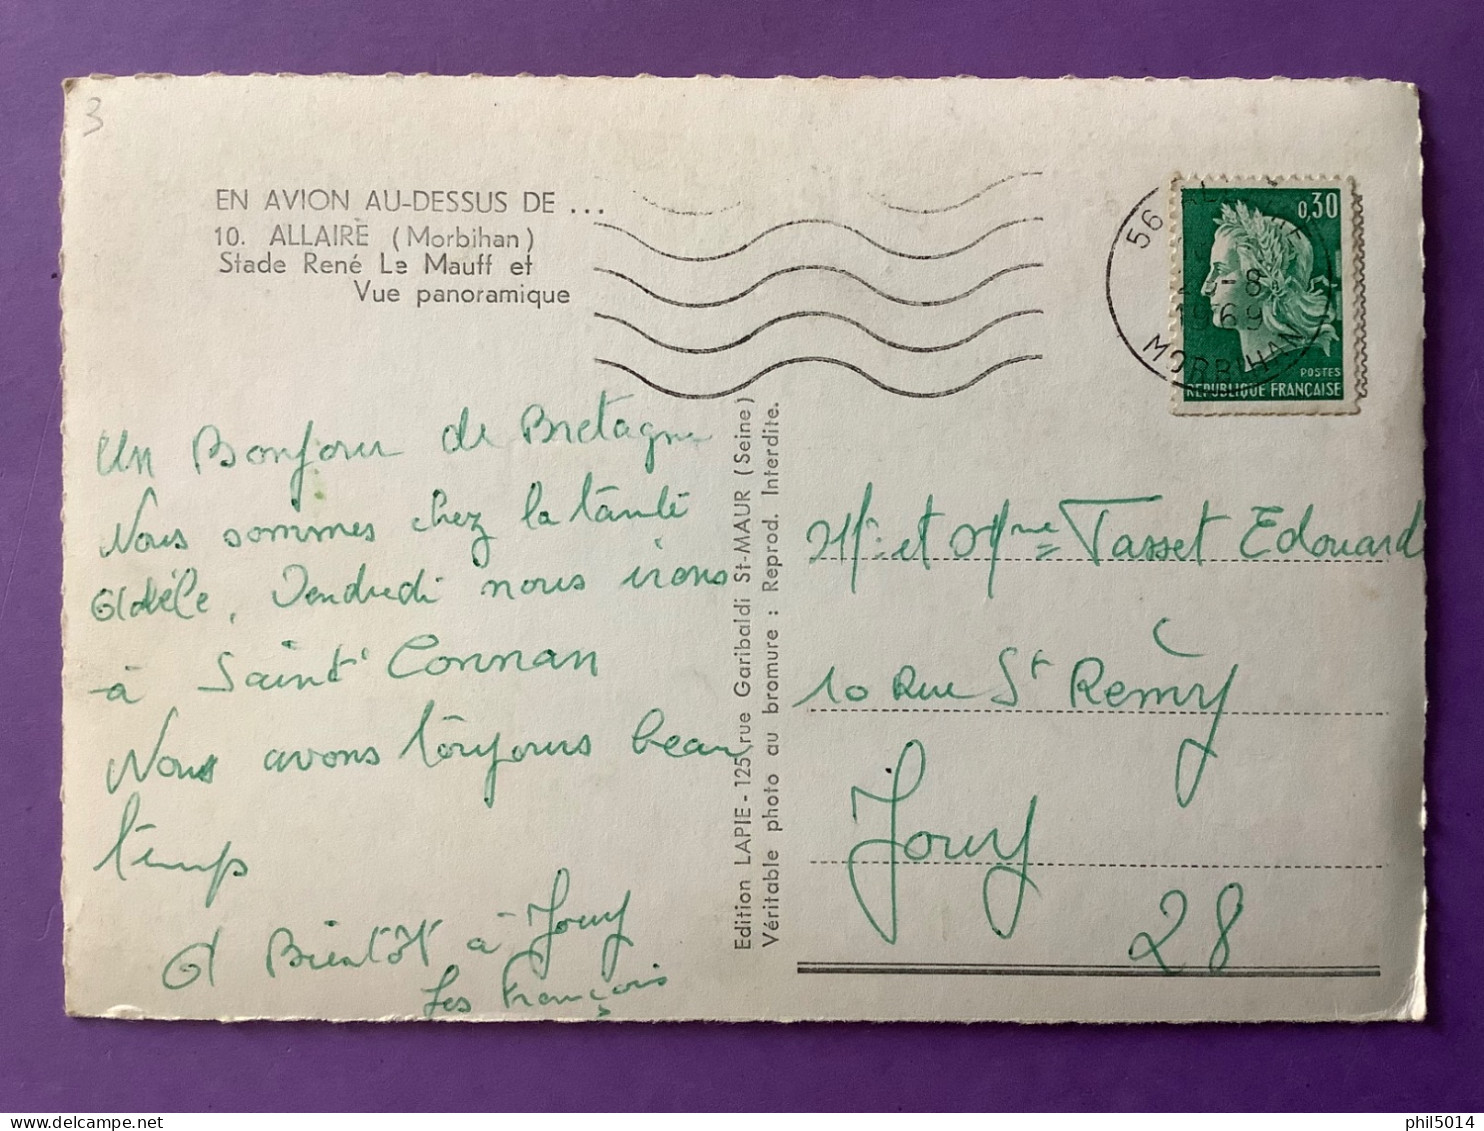 3
EN AVION AU-DESSUS DE ...
10. ALLAIRE (Morbihan)
Stade René Le Mauff et
Vue panoramique
0,30
POSTES
REPUBLIQUE FRANÇAISE
56
-8
1969
MORBIHAN
Un Bonjour de Bretagne
Nous sommes chez la tante
Adèle, Vendredi nous irons
à Saint Connan
Nous avons toujours beau
temps
A Bientôt à Jouy
Les François
Edition LAPIE - 125, rue Garibaldi St-MAUR (Seine)
Véritable photo au bromure : Reprod. Interdite.
Mr et Mme Tasset Edouard
10 Rue St Rémy
Jouy
28
phil5014